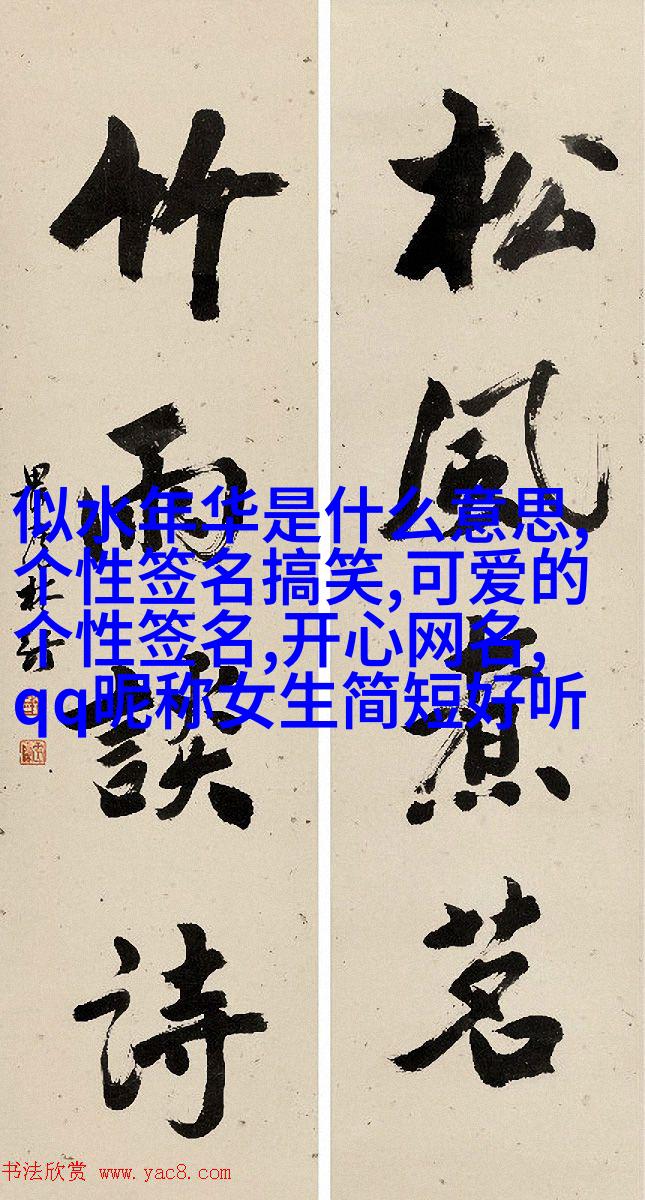 松風煮茗
竹雨談詩
似水年华是什么意思,
个性签名搞笑,可爱的
个性签名,开心网名,
qq昵称女生简短好听
书法欣赏 www.yac8.com